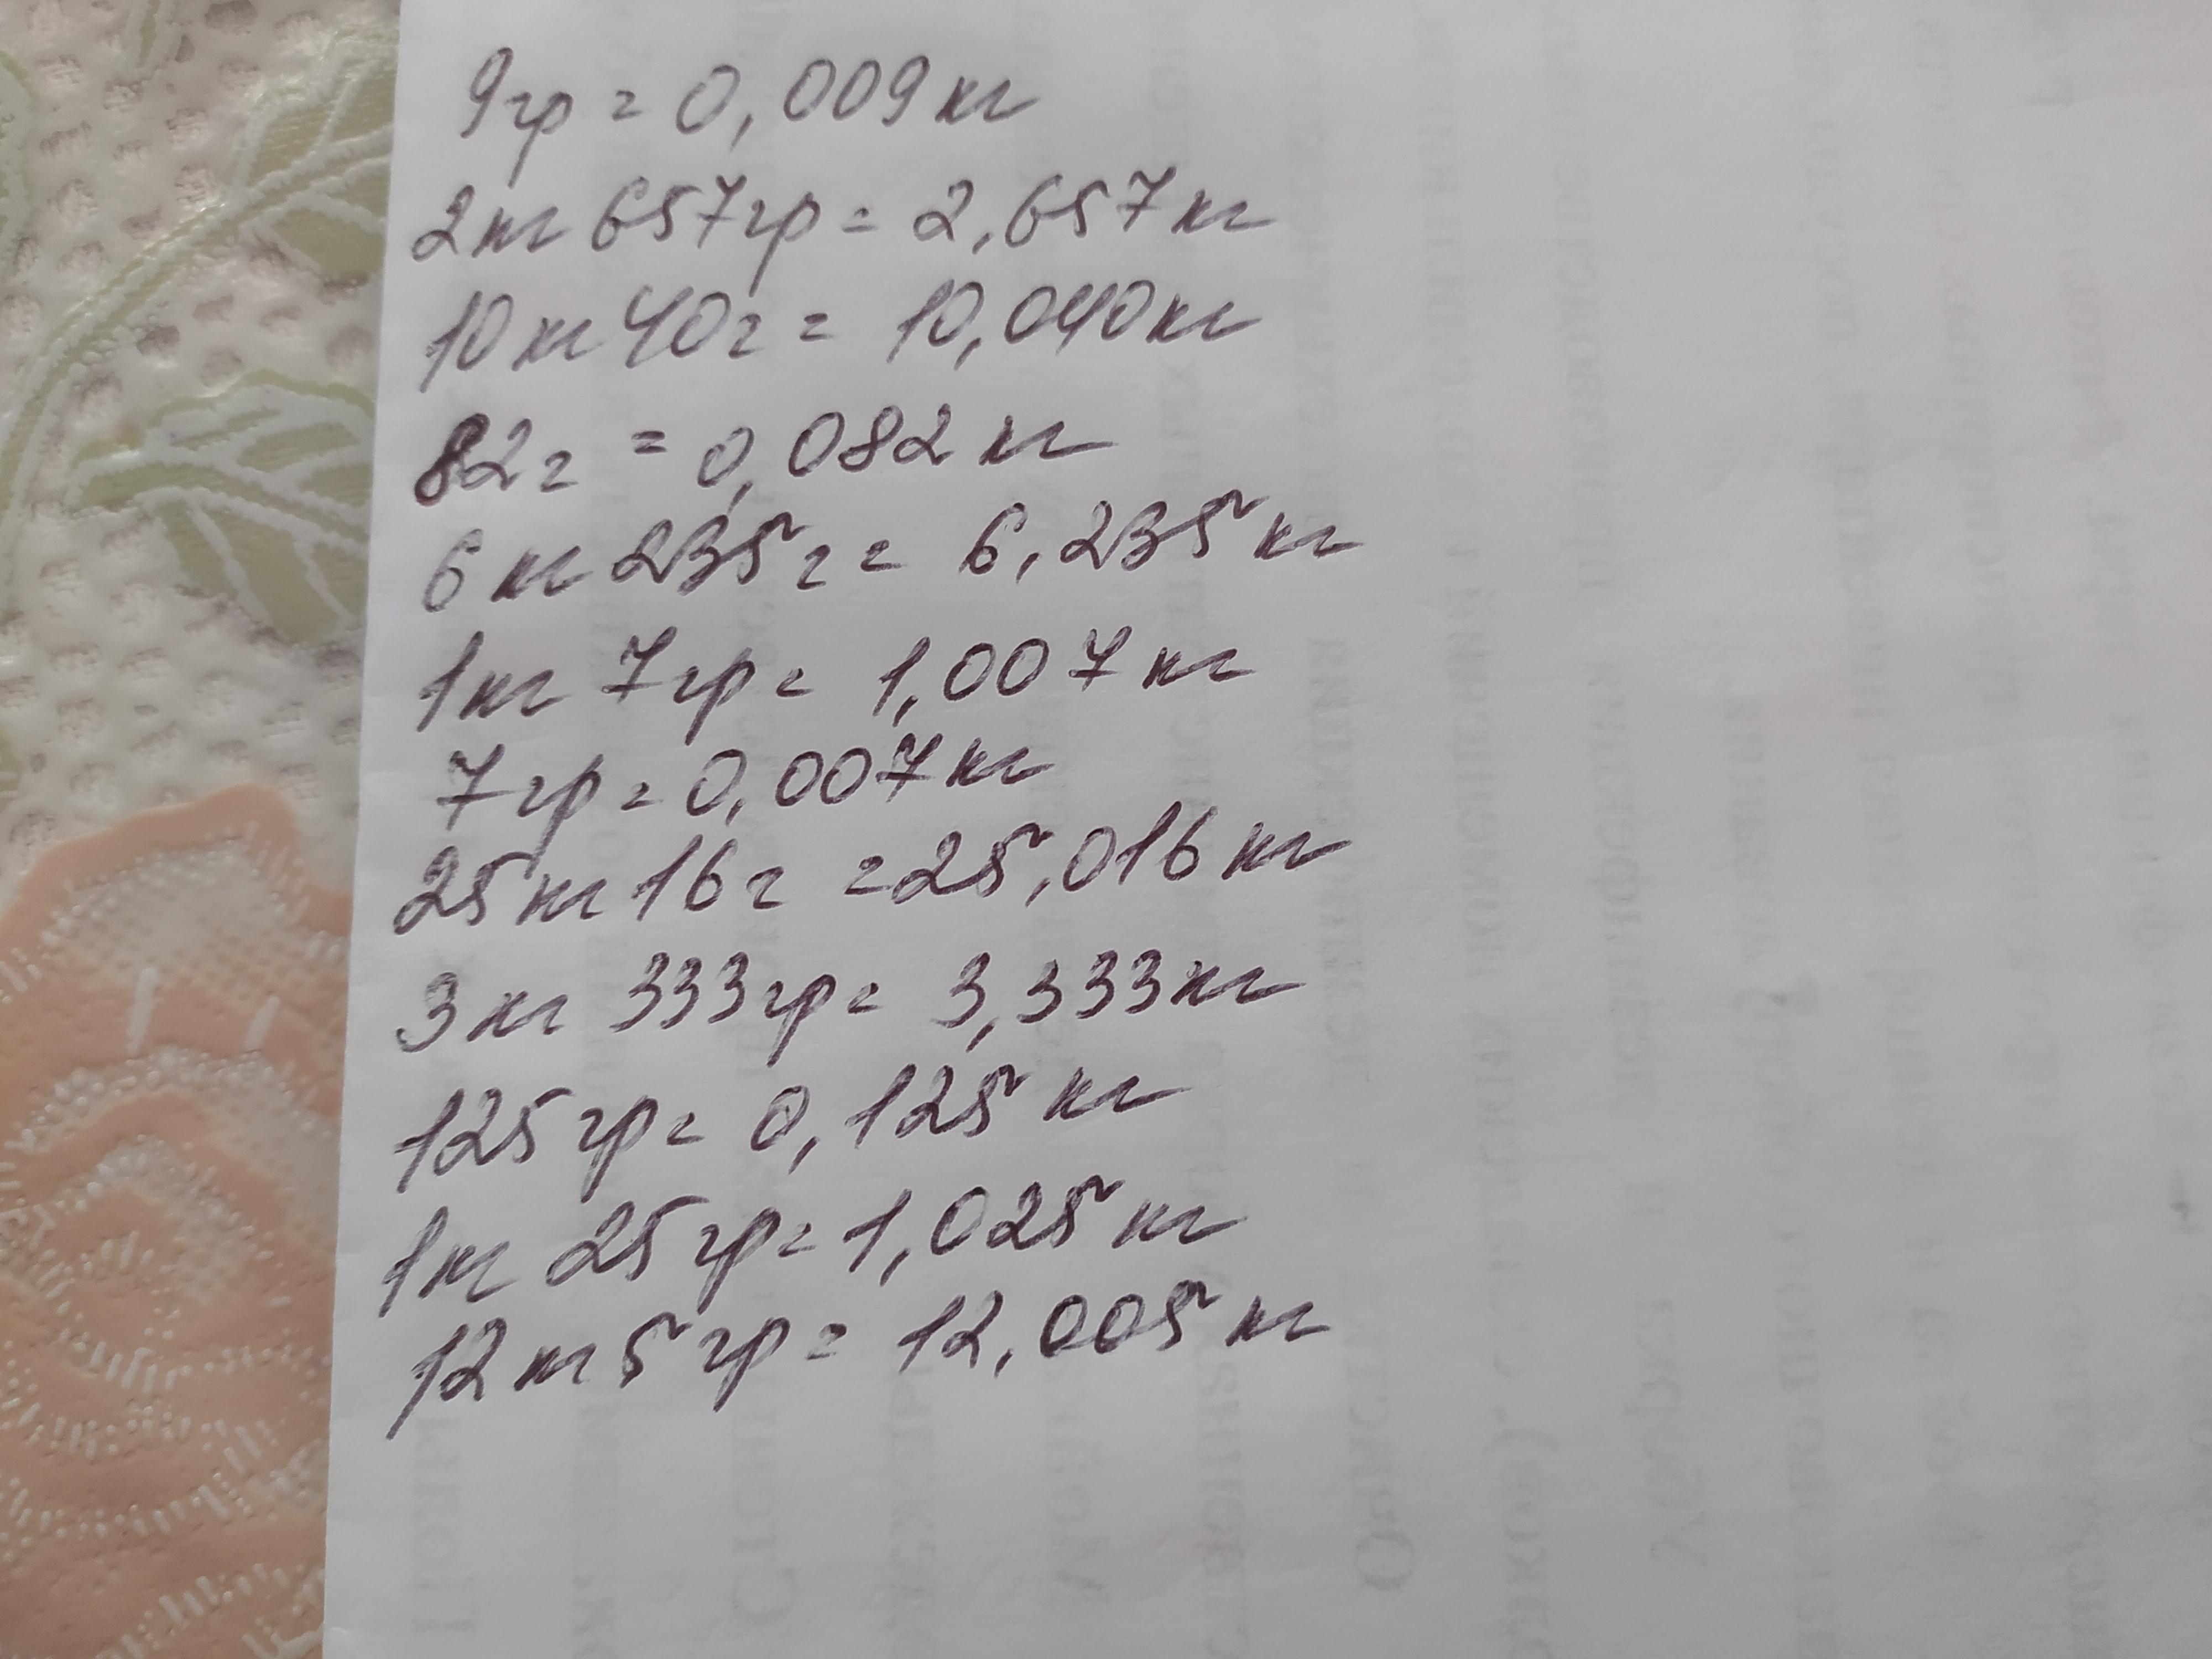 9гр = 0,009кг
2кг 657гр = 2,657кг
10кг 40г = 10,040кг
82г = 0,082кг
6кг 235г = 6,235кг
1кг 7гр = 1,007кг
7гр = 0,007кг
25кг 16г = 25,016кг
3кг 333гр = 3,333кг
125гр = 0,125кг
1кг 25гр = 1,025кг
12кг 5гр = 12,005кг